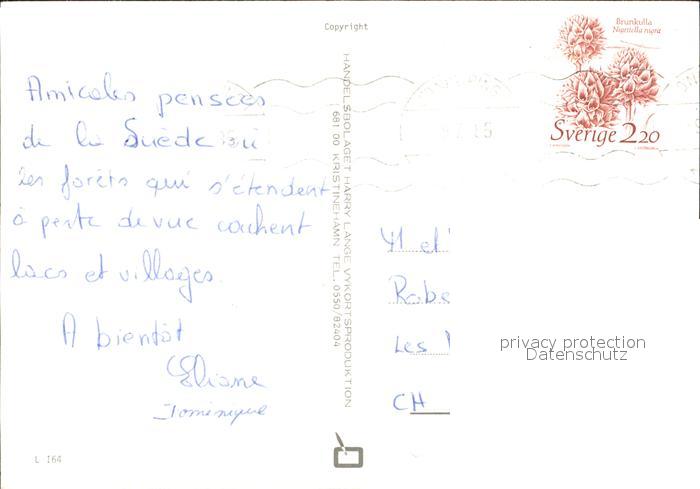 Copyright
Amicales pensées
de la Suède où
les forêts qui s'étendent
à perte de vue cachent
lacs et villages.
A bientôt
Eliane
Dominique
L 164
HANDELSBOLAGET HARRY LANGE VYKORTSPRODUKTION
681 00 KRISTINEHAMN TEL. 0550/82404
Brunkulla
Nigritella nigra
Sverige 2.20
et
Robe
Les
CH
privacy protection
Datenschutz